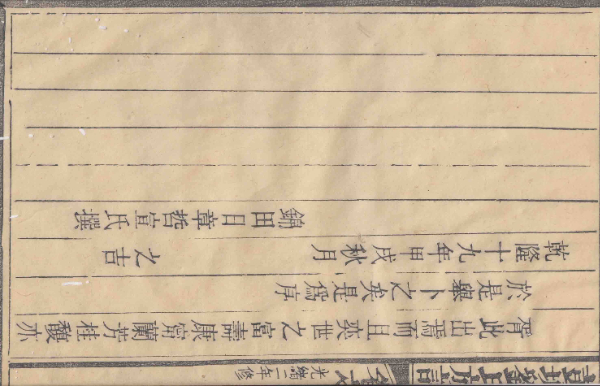 胥此出焉而且奕世之富壽康甯蘭芳桂馥亦
於是舉卜之矣是爲序
乾隆十九年甲戌秋月 之吉
錦田日章哲宣氏撰
光緒二年修